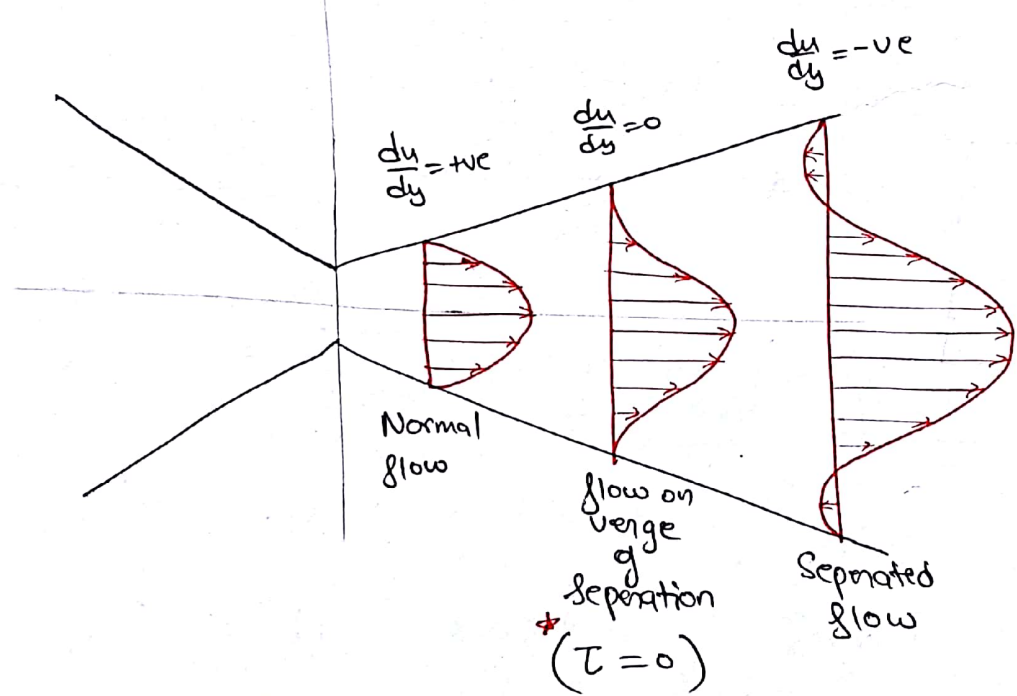 du/dy = +ve
du/dy = 0
du/dy = -ve
Normal
flow
flow on
verge
of
seperation
* (τ = 0)
Seperated
flow